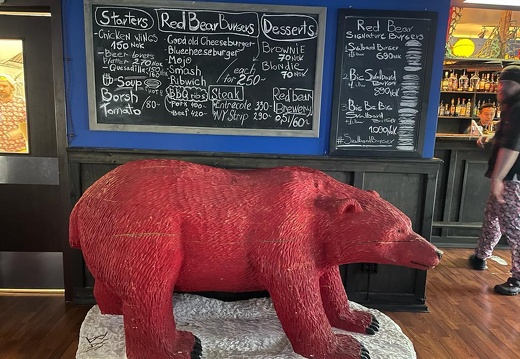 Starters
Chicken Wings
150 NOK
Beer lovers
Platter 270 NOK
Quesadilla
Soup
Borsh
Tomato
80-
Red Bear Burgers
Good old Cheeseburger
Bluecheeseburger
Mojo
Smash
Pubwich
each
for 250-
BBQ ribs
Pork 400-
Beef 420-
Steak
Entrecote 390-
NY Strip 290-
Desserts
Brownie
70 NOK
Blondie
70 NOK
Red bear
Brewery
Red Bear
Signature Burgers
1. Svalbard Burger
690 NOK
2. Big Svalbard
Burger
890
3. Big Big Big
Svalbard
Burger
1090
#SvalbardBurger